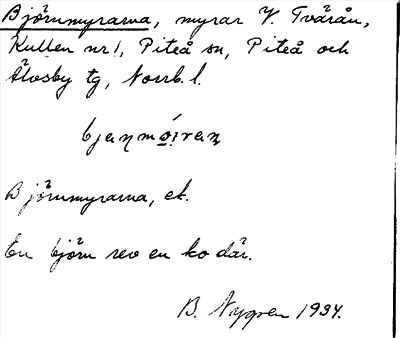 Björnmyrarna, myrar V. Tvärån,
Kullen nr 1, Piteå sn, Piteå och
Älvsby tg, Norrb. l.
Björnmyrarna, et.
En björn rev en ko där.
B. Nygren 1934.